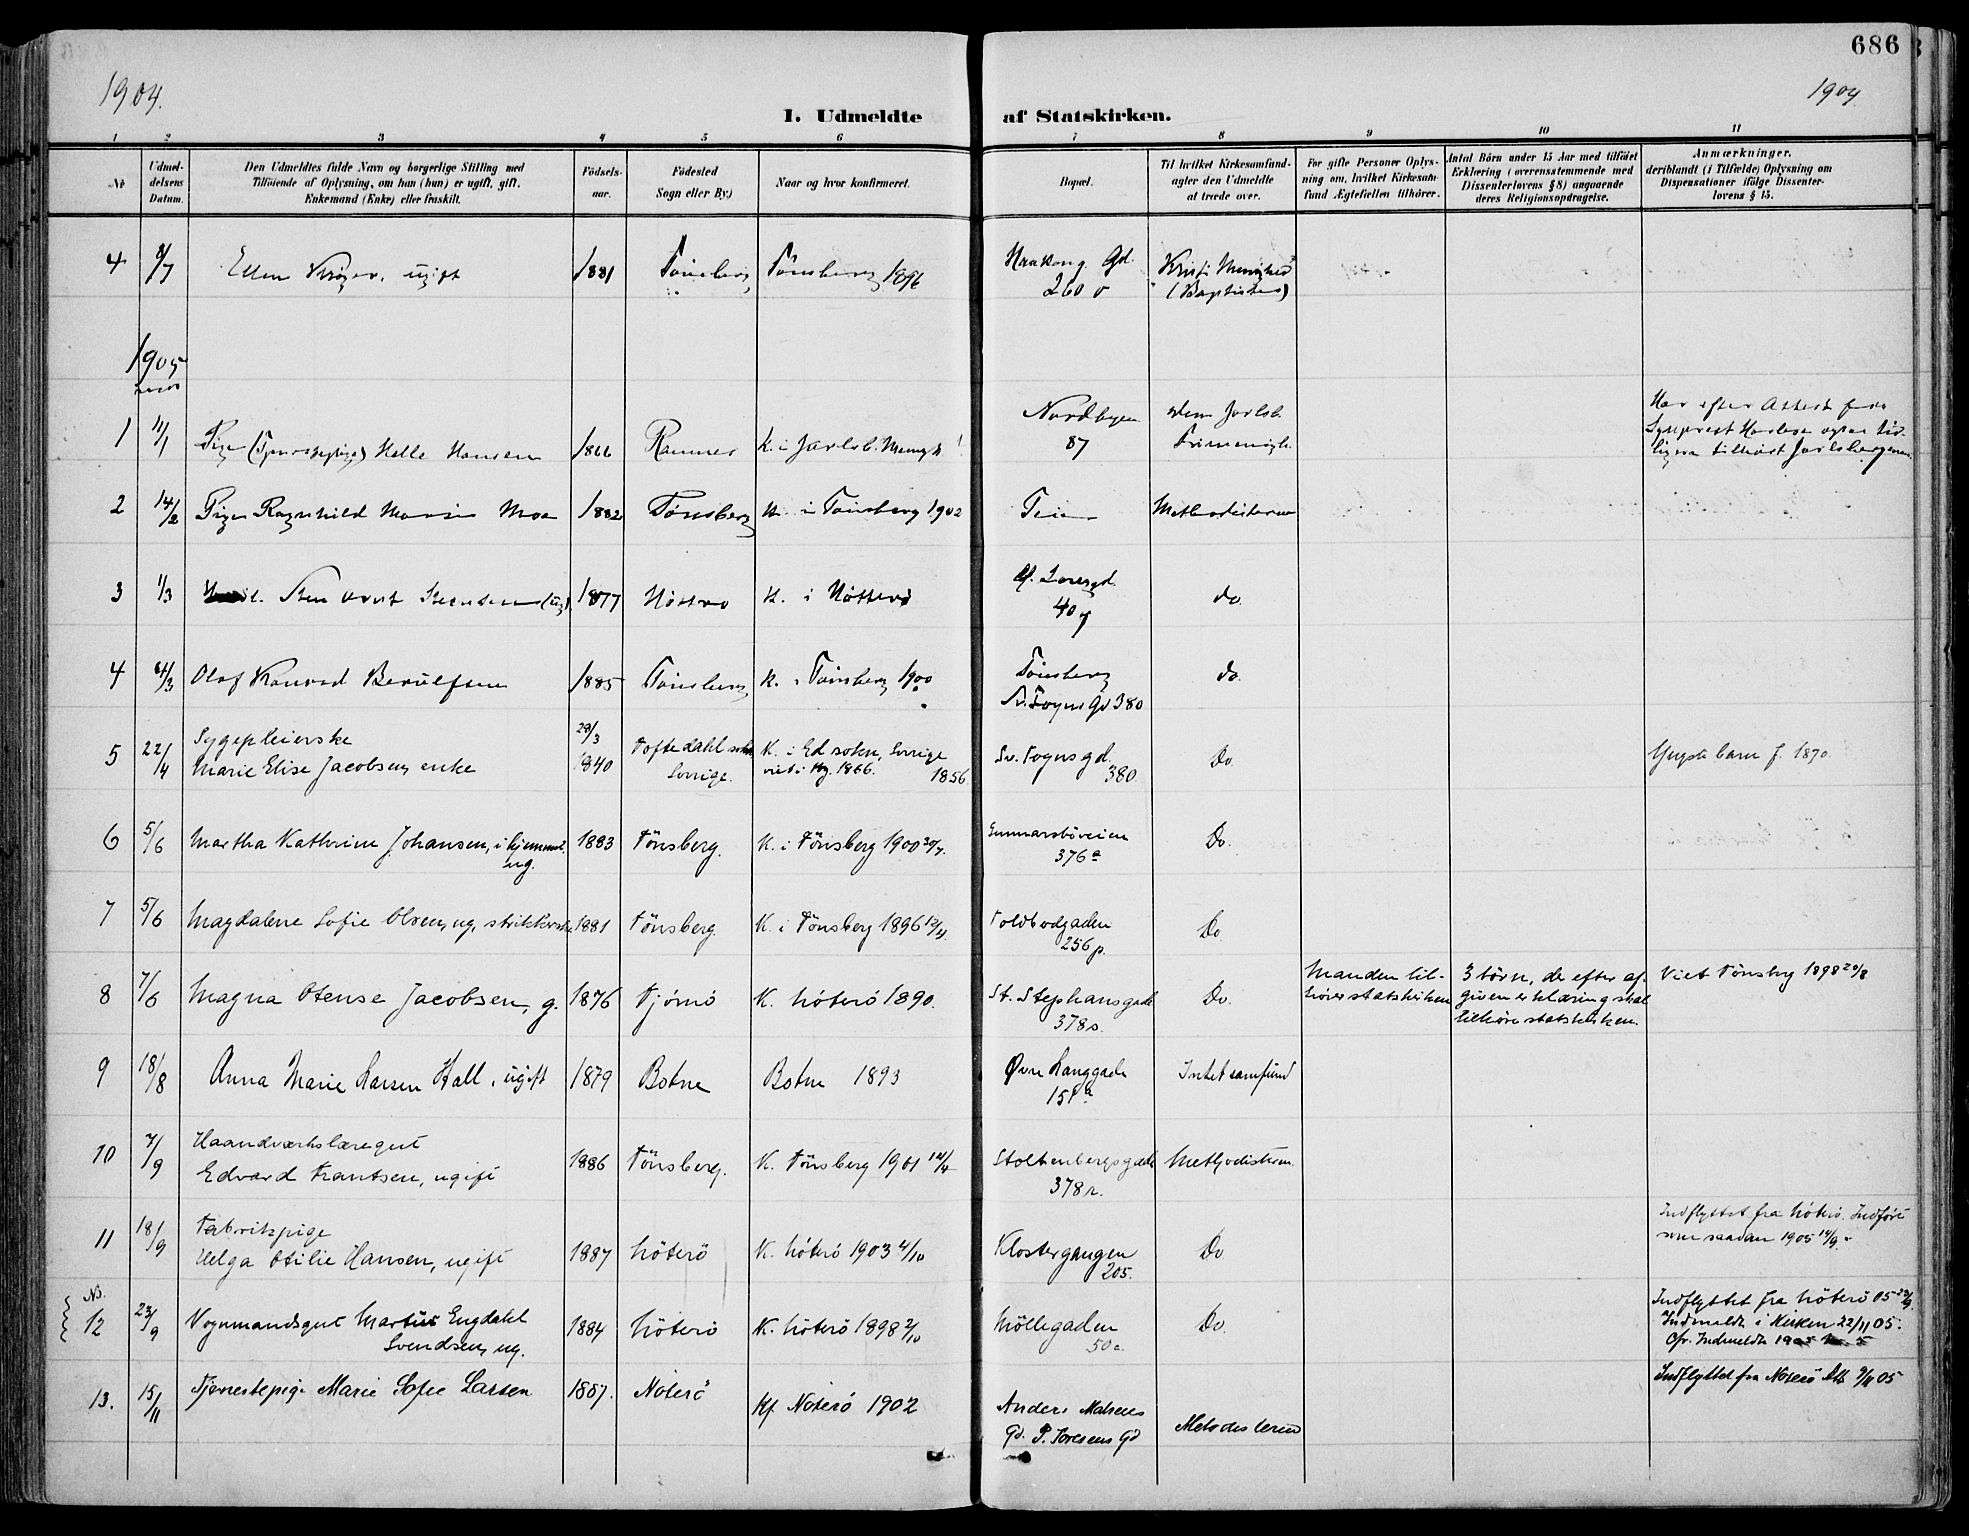 686
1904.
1904
I. Udmeldte af Statskirken.
1 2 3 4 5 6 7 8 9 10 11
No
Udmel-
delsens
Datum.
Den Udmeldtes fulde Navn og borgerlige Stilling med
Tilföiende af Oplysning, om han (hun) er ugift, gift.
Enkemand (Enke) eller fraskilt.
Födsels-
aar.
Födested
Sogn eller By.)
Naar og hvor konfirmeret.
Bopæl.
Til hvilket Kirkesamfund-
agter den Udmeldte
at træde over.
For gifte Personer Oplys-
ning om, hvilket Kirkesam-
fund Ægtefællen tilhörer.
Antal Börn under 15 Aar med tilföiet
Erklæring (overensstemmende med
Dissenterlovens § 8) angaaende
deres Religionsopdragelse.
Anmærkninger.
deriblandt (i Tilfælde) Oplysning om
Dispensationer ifölge Dissenter-
lovens § 15.
4 8/7 Ellen ugift 1881 Tönsberg Tönsberg 1896 Haakong. Gd. Kristi Menighed
260 v (Baptister)
1905
1 11/1 Pige (Tjenestepige) Helle Hansen 1866 Ramnes K. i Jarlsb. Menigh. Nordbyen 87 den Jarlsb. Frimenigh. Har efter Attest fra
Sogneprest ogsaa tid-
ligere tilhört
2 14/2 Pige Ragnhild Marie Moe 1882 Tönsberg K. i Tönsberg 1902 Teie Methodisterne
3 1/3 (ug) 1877 Nötterö K. i Nötterö 40 y do.
4 /3 Olaf Konrad Berulfsen 1885 Tönsberg K. i Tönsberg 1900 Tönsberg do.
Sv. Foyns Gd 380
5 22/4 Sygepleierske
Marie Elise Jacobsen, enke 29/3 1840 Toftedahl sokn, Sverige. K. i Ed sokn, Sverige 1856
viet i 1866. Sv. Foyns gd. 380 Do. Yngste barn f. 1870.
6 5/6 Martha Kathrine Johansen, i hjemmet, ug. 1883 Tönsberg. K. i Tönsberg 1900 Gunnarsböveien 376 a Do.
7 5/6 Magdalene Sofie Olsen, ug. strikkerske 1881 Tönsberg. K. i Tönsberg 1896 12/4. Toldbodgaden 256 p. Do
8 7/6 Magna Otense Jacobsen, g. 1876 Tjömö K. Nöterö 1890. St. Stephansgade 378 s. Do. Manden til-
hörer statskirken 3 börn, de efter af-
given erklæring skal
tilhöre statskirken. Viet Tönsbrg 1898 20/8
9 18/8 Anna Marie Larsen Hall, ugift 1879 Botne Botne 1893 Øvre Langgade 151 a Intet samfund
10 7/9 Haandværkslæregut
Edvard Frantsen, ugift 1886 Tönsberg. K. Tönsberg 1901 14/4 Stoltenbergsgade 378 r. Methodisterne.
11 18/9 Fabrikspige
Helga Otilie Hansen, ugift 1887 Nöterö K. Nöterö 1903 4/10 Klostergangen 205. Do Indflyttet fra Nöterö. Indfört
som saadan 1905 14/9.
NB.
12 23/9 Vognmandsgut Martin Engdahl
Svendsen, ug. 1884 Nöterö K. Nöterö 1898 2/10 Möllegaden 50 c. Do. Indflyttet fra Nöterö 05 22/9.
Indmeldt i Kirken 22/11 05.
Cfr. Indmeldte 1905 No. 5
13. 15/11 Tjenestepige Marie Sofie Larsen 1887. Nöterö Kf. Nöterö 1902 Anders Madsens
Gd. P. Foresens Gd Metodisterne Indflyttet fra Nöterö Att 9/11 05